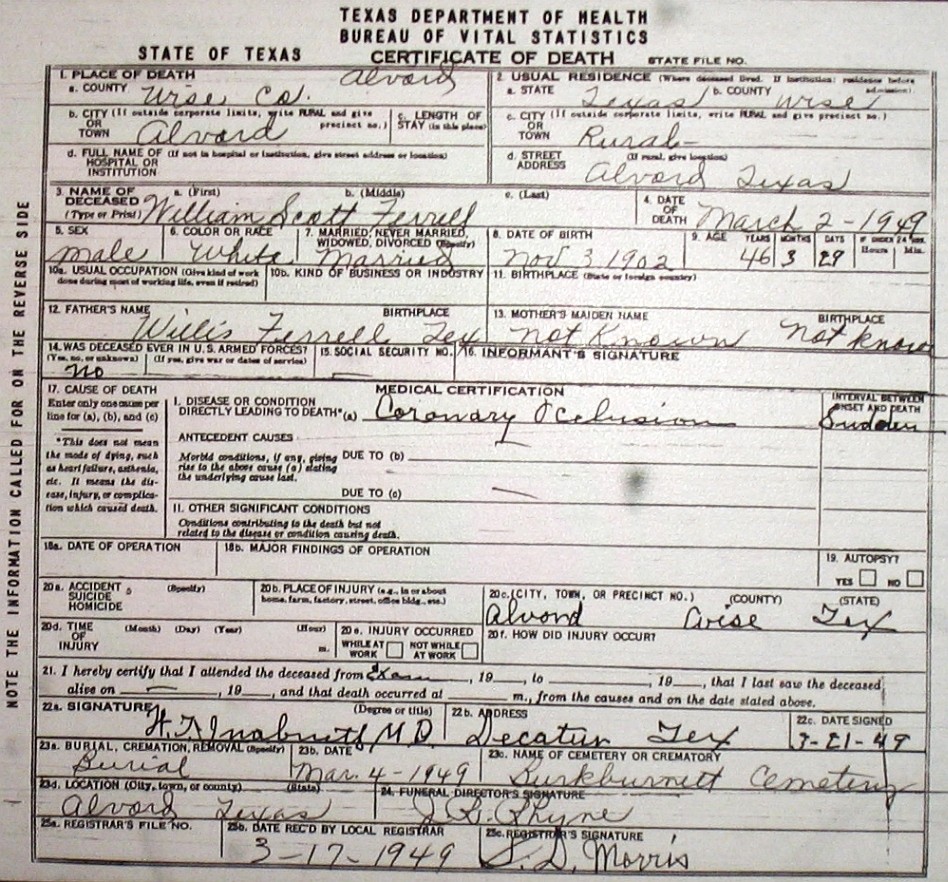 TEXAS DEPARTMENT OF HEALTH
BUREAU OF VITAL STATISTICS
STATE OF TEXAS CERTIFICATE OF DEATH STATE FILE NO.
1. PLACE OF DEATH Alvord
a. COUNTY Wise Co.
b. CITY (If outside corporate limits, write RURAL and give precinct no.) OR TOWN Alvord
c. LENGTH OF STAY (in this place)
d. FULL NAME OF (If not in hospital or institution, give street address or location) HOSPITAL OR INSTITUTION
2. USUAL RESIDENCE (Where deceased lived. If institution: residence before admission).
a. STATE Texas b. COUNTY Wise
c. CITY (If outside corporate limits, write RURAL and give precinct no.) OR TOWN Rural-
d. STREET ADDRESS (If rural, give location) Alvord Texas
3. NAME OF DECEASED (Type or Print) a. (First) b. (Middle) c. (Last) William Scott Ferrell
4. DATE OF DEATH March 2-1949
5. SEX male
6. COLOR OR RACE White
7. MARRIED, NEVER MARRIED, WIDOWED, DIVORCED (Specify) Married
8. DATE OF BIRTH Nov 3 1902
9. AGE YEARS 46 MONTHS 3 DAYS 29 IF UNDER 24 HRS. Hours Min.
10a. USUAL OCCUPATION (Give kind of work done during most of working life, even if retired)
10b. KIND OF BUSINESS OR INDUSTRY
11. BIRTHPLACE (State or foreign country)
12. FATHER'S NAME BIRTHPLACE Willis Ferrell Tex
13. MOTHER'S MAIDEN NAME BIRTHPLACE not Known Not know
14. WAS DECEASED EVER IN U.S. ARMED FORCES? (Yes, no, or unknown) (If yes, give war or dates of service) no
15. SOCIAL SECURITY NO. —
16. INFORMANT'S SIGNATURE
17. CAUSE OF DEATH
Enter only one cause per line for (a), (b), and (c)
*This does not mean the mode of dying, such as heart failure, asthenia, etc. It means the disease, injury, or complication which caused death.
MEDICAL CERTIFICATION
I. DISEASE OR CONDITION DIRECTLY LEADING TO DEATH* (a) Coronary Oclusion
INTERVAL BETWEEN ONSET AND DEATH Sudden
ANTECEDENT CAUSES
Morbid conditions, if any, giving rise to the above cause (a) stating the underlying cause last.
DUE TO (b)
DUE TO (c)
II. OTHER SIGNIFICANT CONDITIONS
Conditions contributing to the death but not related to the disease or condition causing death.
18a. DATE OF OPERATION
18b. MAJOR FINDINGS OF OPERATION
19. AUTOPSY? YES NO
20a. ACCIDENT SUICIDE HOMICIDE (Specify)
20b. PLACE OF INJURY (e.g., in or about home, farm, factory, street, office bldg., etc.)
20c. (CITY, TOWN, OR PRECINCT NO.) (COUNTY) (STATE)
Alvord Wise Tex
20d. TIME OF INJURY (Month) (Day) (Year) (Hour) m.
20e. INJURY OCCURRED WHILE AT WORK NOT WHILE AT WORK
20f. HOW DID INJURY OCCUR?
21. I hereby certify that I attended the deceased from Exam, 19__, to ____, 19__, that I last saw the deceased
alive on —, 19__, and that death occurred at ____ m., from the causes and on the date stated above.
22a. SIGNATURE (Degree or title) M.D.
22b. ADDRESS Decatur Tex
22c. DATE SIGNED 3-21-49
23a. BURIAL, CREMATION, REMOVAL (Specify) Burial
23b. DATE Mar. 4-1949
23c. NAME OF CEMETERY OR CREMATORY Burkburnett Cemetery
23d. LOCATION (City, town, or county) (State) Alvord Texas
24. FUNERAL DIRECTOR'S SIGNATURE Rhyne
25a. REGISTRAR'S FILE NO.
25b. DATE REC'D BY LOCAL REGISTRAR 3-17-1949
25c. REGISTRAR'S SIGNATURE S. D. Morris
NOTE THE INFORMATION CALLED FOR ON THE REVERSE SIDE